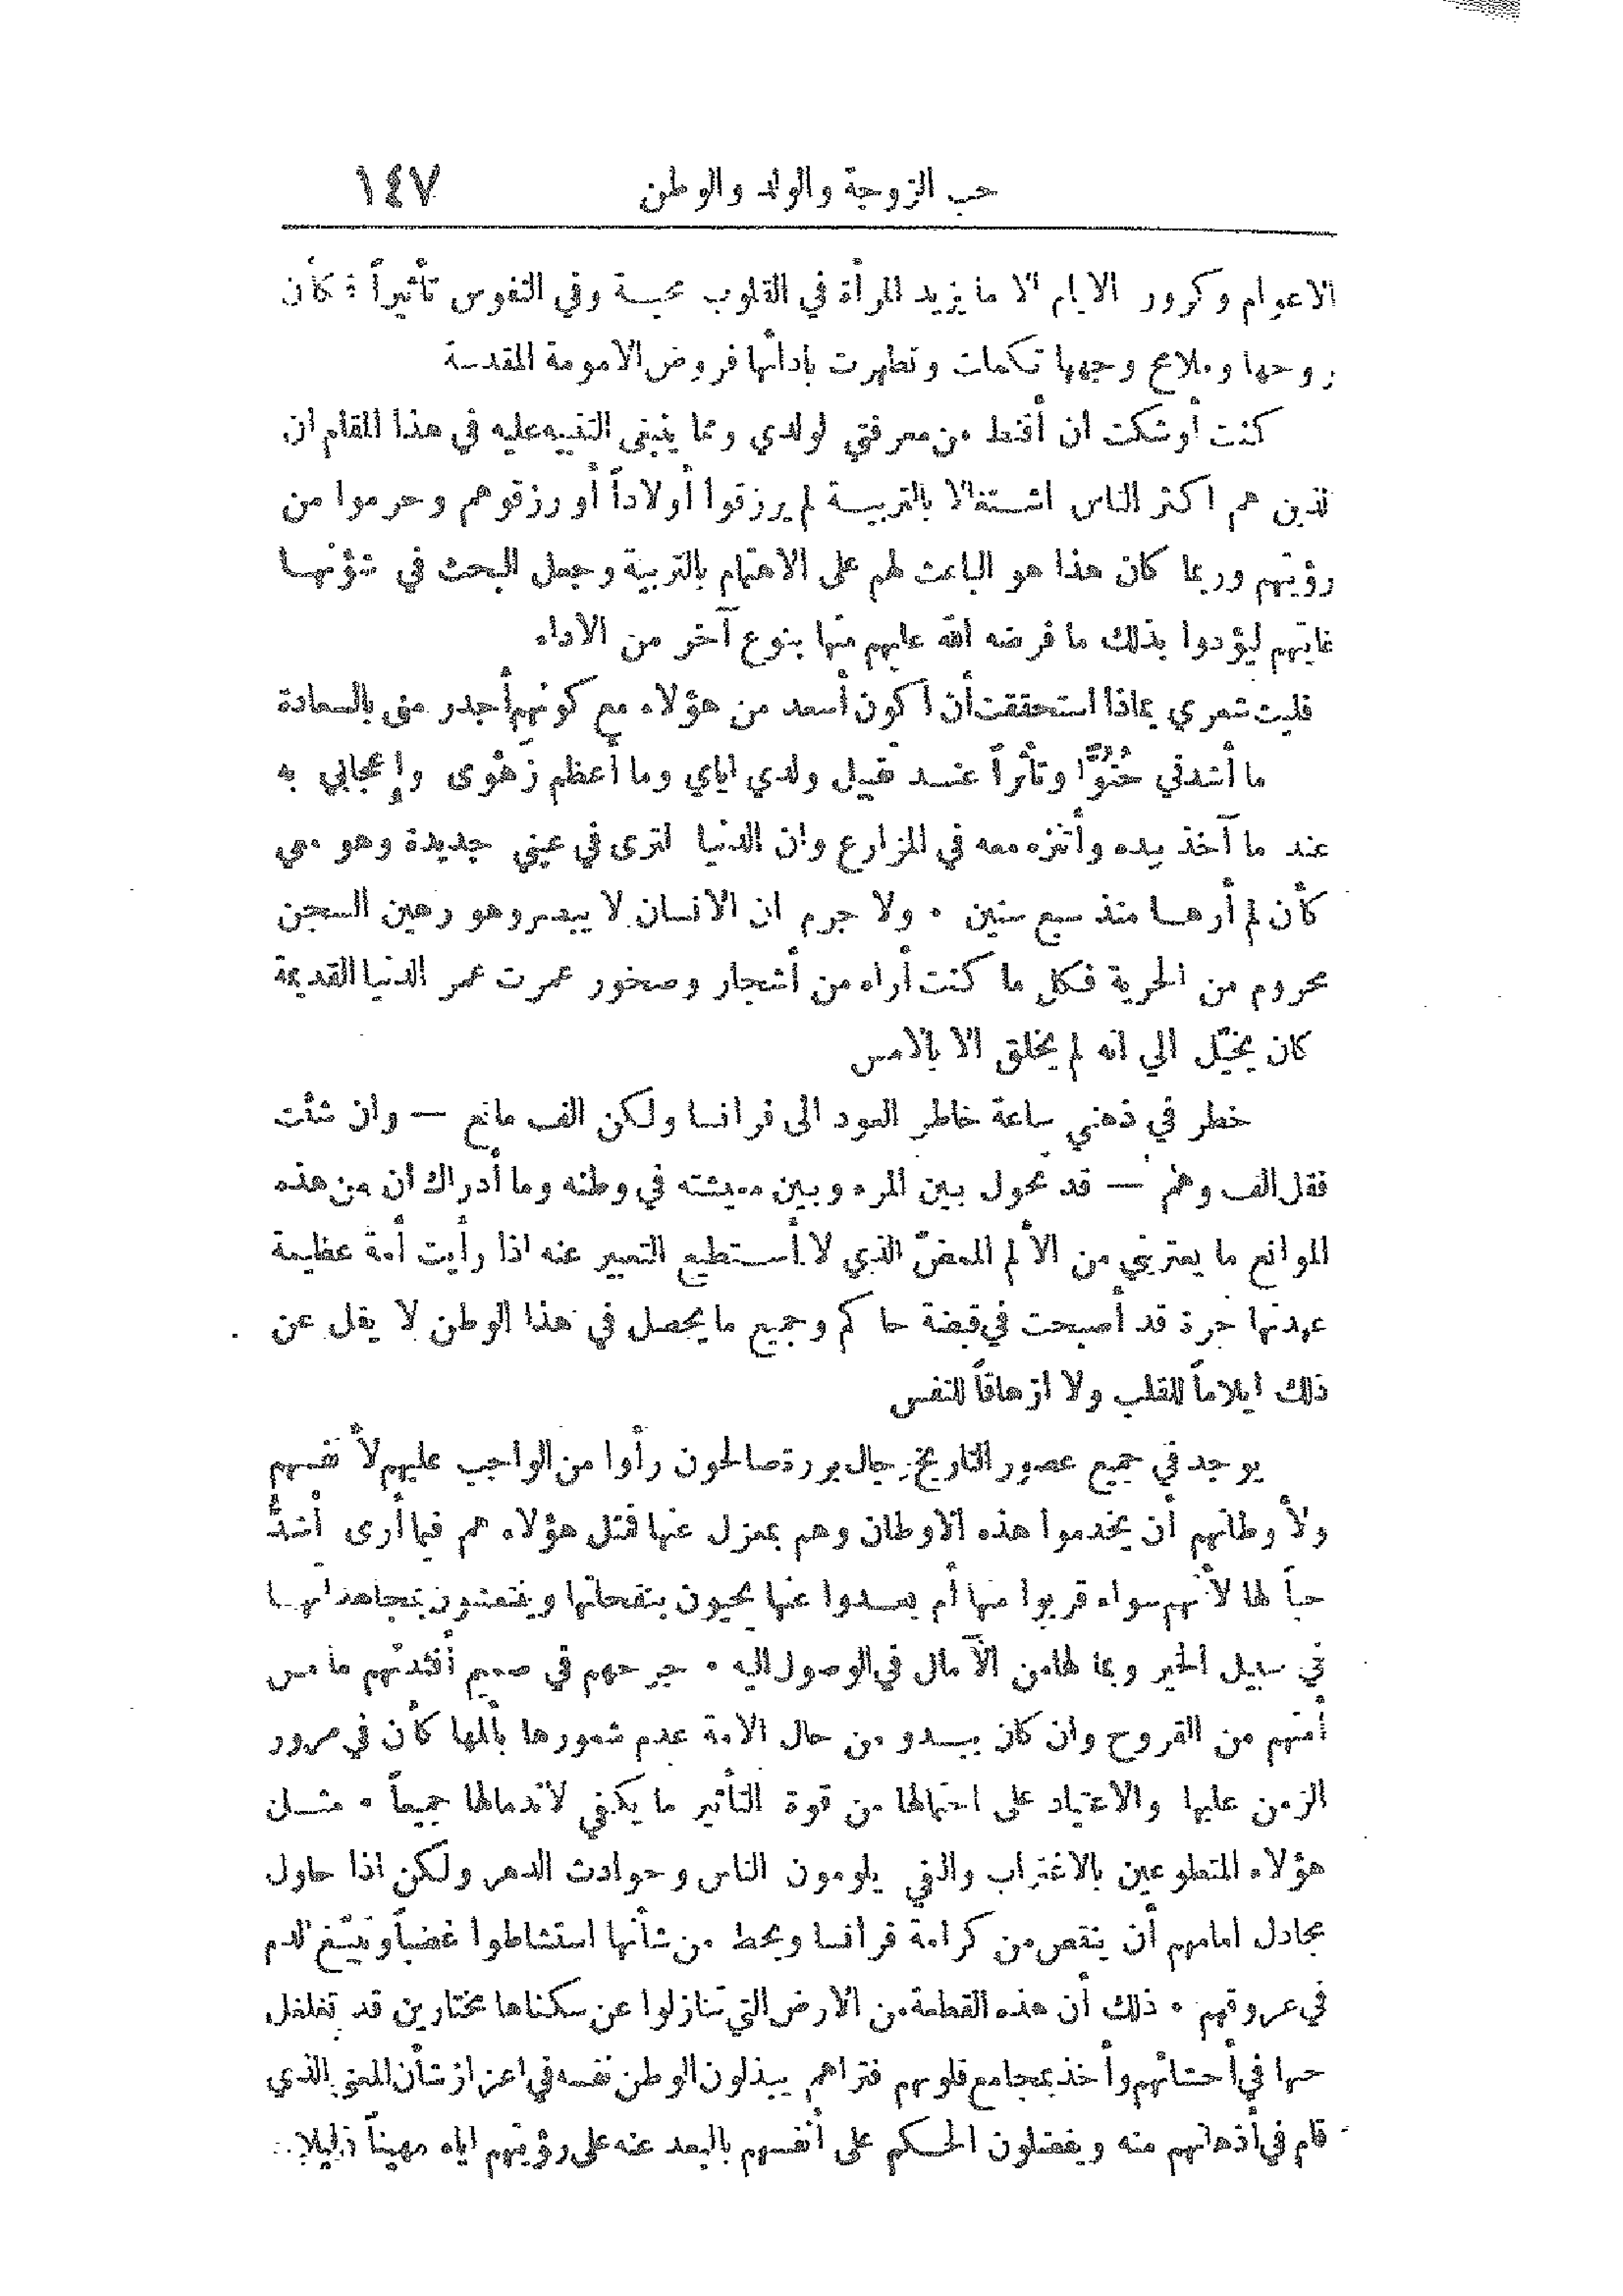 حب الزوجة والولد والوطن ١٤٧
الاعوام وكرور الايام الا ما يزيد المرأة في القلوب محبة وفي النفوس تأثيراً : كأن
روحها وملامح وجهها تكملت وتطهرت بادائها فروض الامومة المقدسة
كنت أوشكت ان أقنط من معرفتي لولدي ومما ينبغى التنبيه عليه في هذا المقام ان
الذين هم اكثر الناس اشتغالا بالتربيـة لم يرزقوا أولاداً أو رزقوهم وحرموا من
رؤيتهم وربما كان هذا هو الباعث لهم على الاهتمام بالتربية وجعل البحث في شؤنهـا
غايتهم ليؤدوا بذلك ما فرضه الله عليهم منها بنوع آخر من الاداء
فليت شعري بماذا استحققت أن أكون أسعد من هؤلاء مع كونهم أجدر منى بالسعادة
ما أشدني حُنُوًّا وتأثراً عنـد تقبيل ولدي اياي وما أعظم زَهْوى وإعجابي به
عند ما آخذ بيده وأتنزه معه في المزارع وان الدنيا لترى في عيني جديدة وهو معي
كأن لم أرهـا منذ سبع سنين ٠ ولا جرم ان الانسان لا يبصر وهو رهين السجن
محروم من الحرية فكل ما كنت أراه من أشجار وصخور عمرت عمر الدنيا القديمة
كان يخيّل الي انه لم يخلق الا بالامس
خطر في ذهني ساعة خاطر العود الى فرانسا ولكن الف مانع — وان شئت
فقل الف وهم — قد تحول بين المرء وبين معيشته في وطنه وما أدراك أن من هذه
الموانع ما يعتريني من الألم الممضّ الذي لا أستطيع التعبير عنه اذا رأيت أمة عظيمة
عهدتها حرة قد أصبحت في قبضة حاكم وجميع ما يحصل في هذا الوطن لا يقل عن
ذلك ايلاماً للقلب ولا ازهاقاً للنفس
يوجد في جميع عصور التاريخ رجال بررة صالحون رأوا من الواجب عليهم لأنفسهم
ولأوطانهم أن يخدموا هذه الاوطان وهم بمعزل عنها فمثل هؤلاء هم فيما أرى أشدُّ
حباً لها لأنهم سواء قربوا منها أم بعـدوا عنها يحيون بنفحاتها وينتعشون بمجاهداتهـا
في سبيل الخير وبما لها من الآمال في الوصول اليه ٠ جرحهم في صميم أفئدتهم ما مس
أمتهم من القروح وان كان يبـدو من حال الامة عدم شعورها بألمها كأن في مرور
الزمن عليها والاعتياد على احتمالها من قوة التأثير ما يكفي لاندمالها جميعاً ٠ مثـل
هؤلاء المتطوعين بالاغتراب والنفي يلومون الناس وحوادث الدهر ولكن اذا حاول
مجادل امامهم أن ينقص من كرامة فرانسا ويحط من شأنها استشاطوا غضباً وتَبَيَّغ الدم
في عروقهم ٠ ذلك أن هذه القطعة من الارض التي تنازلوا عن سكناها مختارين قد تغلغل
حبها في أحشائهم وأخذ بمجامع قلوبهم فتراهم يبذلون الوطن نفسه في اعزاز شأن المعنى الذي
قام في أذهانهم منه ويفضلون الحكم على أنفسهم بالبعد عنه على رؤيتهم اياه مهيناً ذليلا